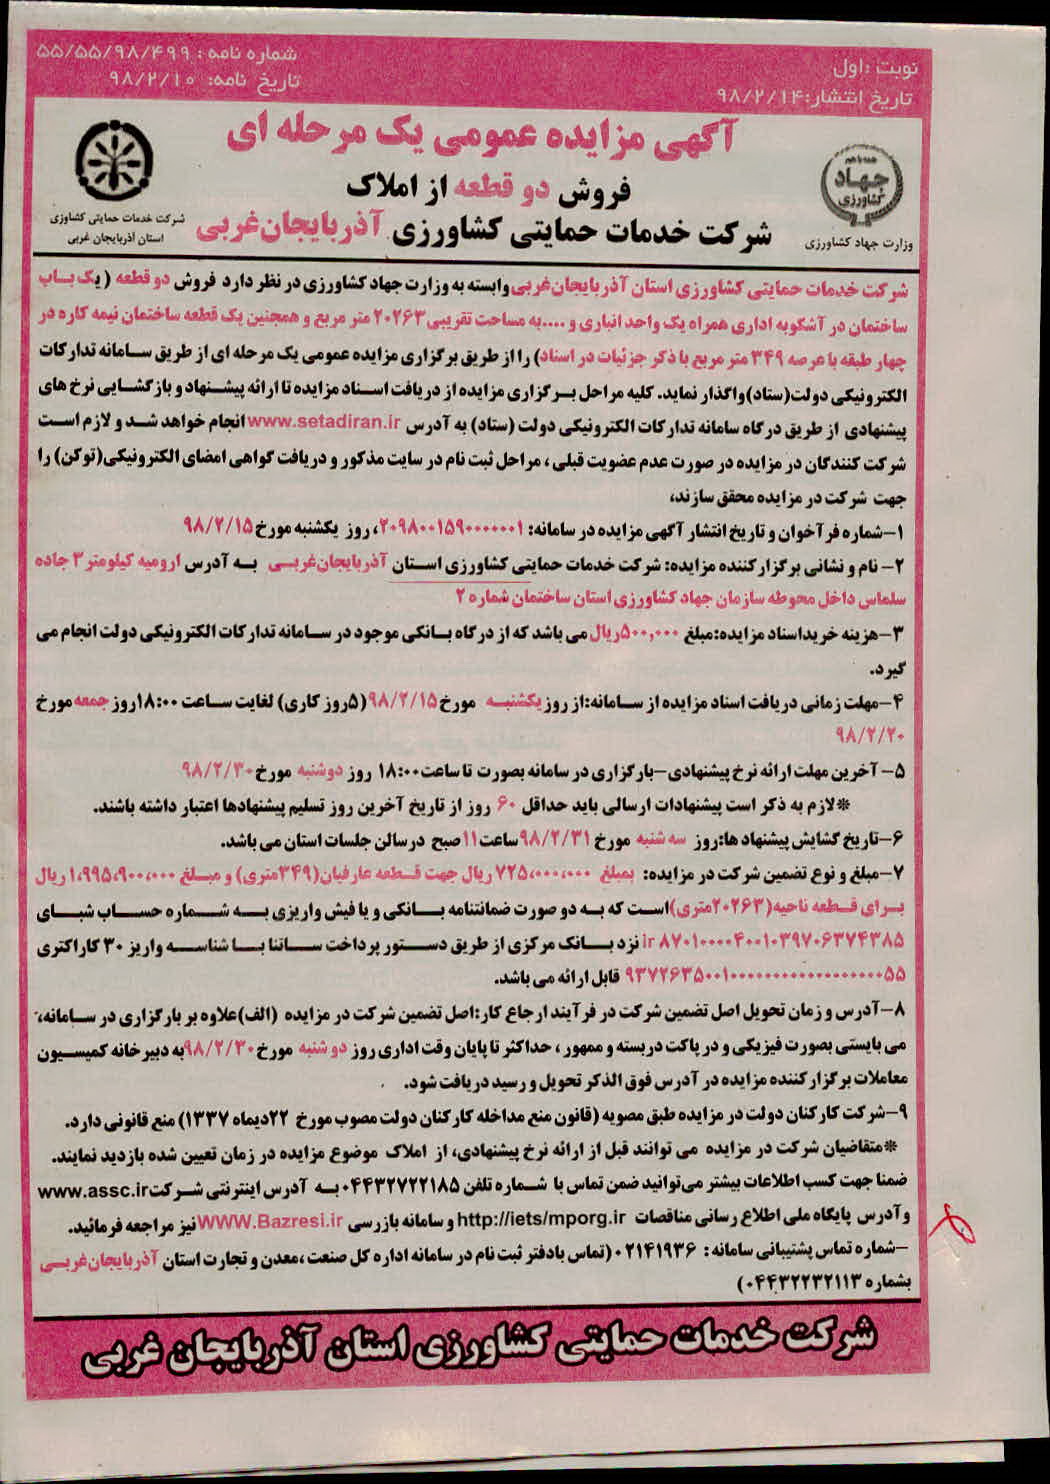 نوبت : اول
تاریخ انتشار: ۹۸/۲/۱۴
شماره نامه : ۵۵/۵۵/۹۸/۴۹۹
تاریخ نامه: ۹۸/۲/۱۰
آگهی مزایده عمومی یک مرحله ای
فروش دو قطعه از املاک
شرکت خدمات حمایتی کشاورزی آذربایجان‌غربی
همه با هم
جهاد
کشاورزی
وزارت جهاد کشاورزی
شرکت خدمات حمایتی کشاورزی
استان آذربایجان غربی
شرکت خدمات حمایتی کشاورزی استان آذربایجان‌غربی وابسته به وزارت جهاد کشاورزی در نظر دارد فروش دو قطعه ( یک باب
ساختمان در آشکوبه اداری همراه یک واحد انباری و ....به مساحت تقریبی ۲۰۲۶۳ متر مربع و همچنین یک قطعه ساختمان نیمه کاره در
چهار طبقه با عرصه ۳۴۹ متر مربع با ذکر جزئیات در اسناد) را از طریق برگزاری مزایده عمومی یک مرحله ای از طریق سـامانه تدارکات
الکترونیکی دولت(ستاد)واگذار نماید. کلیه مراحل برگزاری مزایده از دریافت اسناد مزایده تا ارائه پیشنهاد و بازگشایی نرخ های
پیشنهادی از طریق درگاه سامانه تدارکات الکترونیکی دولت (ستاد) به آدرس www.setadiran.ir انجام خواهد شـد و لازم است
شرکت کنندگان در مزایده در صورت عدم عضویت قبلی ، مراحل ثبت نام در سایت مذکور و دریافت گواهی امضای الکترونیکی(توکن) را
جهت شرکت در مزایده محقق سازند،
۱-شماره فرآخوان و تاریخ انتشار آگهی مزایده در سامانه: ۲۰۹۸۰۰۱۵۹۰۰۰۰۰۰۱، روز یکشنبه مورخ ۹۸/۲/۱۵
۲- نام و نشانی برگزار کننده مزایده: شرکت خدمات حمایتی کشاورزی استان آذربایجان‌غربـی به آدرس ارومیه کیلومتر ۳ جاده
سلماس داخل محوطه سازمان جهاد کشاورزی استان ساختمان شماره ۲
۳-هزینه خریداسناد مزایده:مبلغ ۵۰۰,۰۰۰ریال می باشد که از درگاه بـانکی موجود در سـامانه تدارکات الکترونیکی دولت انجام می
گیرد.
۴-مهلت زمانی دریافت اسناد مزایده از سـامانه:از روز یکشنبـه مورخ ۹۸/۲/۱۵ (۵روز کاری) لغایت سـاعت ۱۸:۰۰روز جمعه مورخ
۹۸/۲/۲۰
۵- آخرین مهلت ارائه نرخ پیشنهادی-بارگزاری در سامانه بصورت تا ساعت ۱۸:۰۰ روز دوشنبه مورخ ۹۸/۲/۳۰
*لازم به ذکر است پیشنهادات ارسالی باید حداقل ۶۰ روز از تاریخ آخرین روز تسلیم پیشنهادها اعتبار داشته باشند.
۶-تاریخ گشایش پیشنهاد ها:روز سه شنبه مورخ ۹۸/۲/۳۱ساعت ۱۱صبح درسالن جلسات استان می باشد.
۷-مبلغ و نوع تضمین شرکت در مزایده: بمبلغ ۷۲۵,۰۰۰,۰۰۰ ریال جهت قـطعه عارفیان(۳۴۹متری) و مبـلغ ۱,۹۹۵,۹۰۰,۰۰۰ ریال
بـرای قـطعه ناحیه(۲۰۲۶۳متری)است که به دو صورت ضمانتنامه بـانکی و یا فیش واریزی بـه شـماره حساب شبـای
ir ۸۷۰۱۰۰۰۰۴۰۰۱۰۳۹۷۰۶۳۷۴۳۸۵ نزد بـانک مرکزی از طریق دستور پرداخت سـاتنا بـا شناسـه واریز ۳۰ کاراکتری
۹۳۷۲۶۳۵۰۰۱۰۰۰۰۰۰۰۰۰۰۰۰۰۰۰۰۰۰۰۵۵ قابل ارائه می باشد.
۸-آدرس و زمان تحویل اصل تضمین شرکت در فرآیند ارجاع کار:اصل تضمین شرکت در مزایده (الف)علاوه بر بارگزاری در سـامانه،
می بایستی بصورت فیزیکی و در پاکت دربسته و ممهور ، حداکثر تا پایان وقت اداری روز دو شنبه مورخ ۹۸/۲/۳۰به دبیرخانه کمیسیون
معاملات برگزار کننده مزایده در آدرس فوق الذکر تحویل و رسید دریافت شود.
۹-شرکت کارکنان دولت در مزایده طبق مصوبه (قانون منع مداخله کارکنان دولت مصوب مورخ ۲۲دیماه ۱۳۳۷) منع قانونی دارد.
*متقاضیان شرکت در مزایده می توانند قبل از ارائه نرخ پیشنهادی، از املاک موضوع مزایده در زمان تعیین شده بازدید نمایند.
ضمنا جهت کسب اطلاعات بیشتر می‌توانید ضمن تماس با شـماره تلفن ۰۴۴۳۲۷۲۲۱۸۵ بـه آدرس اینترنتی شـرکت www.assc.ir
و آدرس پایگاه ملی اطلاع رسانی مناقصات http://iets/mporg.ir و سامانه بازرسی WWW.Bazresi.ir نیز مراجعه فرمائید.
-شماره تماس پشتیبانی سامانه : ۰۲۱۴۱۹۳۶ (تماس بادفتر ثبت نام در سامانه اداره کل صنعت ،معدن و تجارت استان آذربایجان‌غربـی
بشماره ۰۴۴۳۲۲۳۲۱۱۳)
شرکت خدمات حمایتی کشاورزی استان آذربایجان غربی